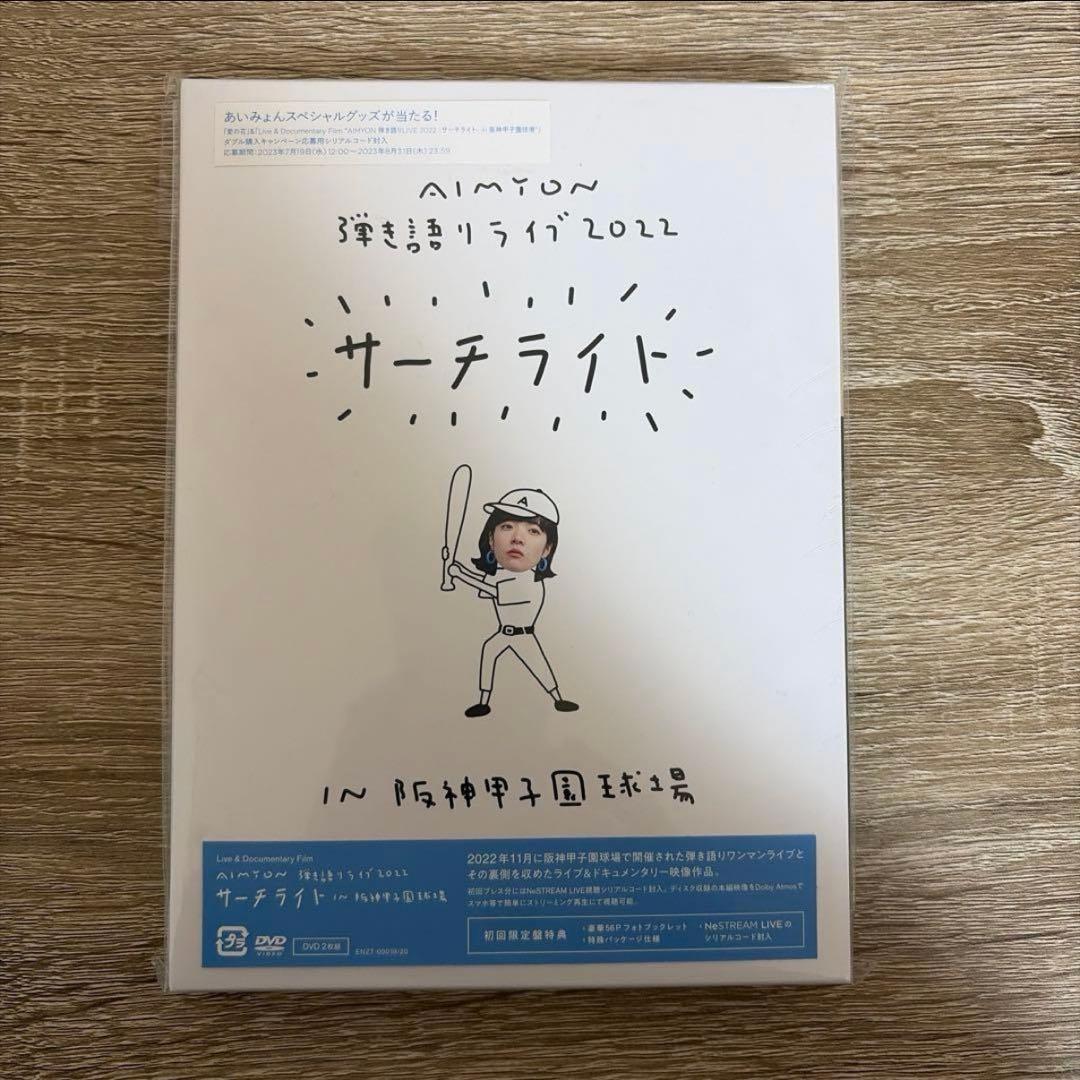 あいみょんスペシャルグッズが当たる!
「愛の花」&「Live & Documentary Film "AIMYON 弾き語りLIVE 2022 -サーチライト- in 阪神甲子園球場"」
ダブル購入キャンペーン応募用シリアルコード封入
応募期間:2023年7月19日(水)12:00〜2023年8月31日(木)23:59
AIMYON
弾き語りライブ2022
サーチライト
A
IN 阪神甲子園球場
Live & Documentary Film
AIMYON 弾き語りライブ2022
サーチライト IN 阪神甲子園球場
プラ
DVD
VIDEO
DVD 2枚組
ENZT-00019/20
2022年11月に阪神甲子園球場で開催された弾き語りワンマンライブと
その裏側を収めたライブ&ドキュメンタリー映像作品。
初回プレス分にはNeSTREAM LIVE視聴シリアルコード封入。ディスク収録の本編映像をDolby Atmosで
スマホ等で簡単にストリーミング再生にて視聴可能。
初回限定盤特典
・豪華56P フォトブックレット
・特殊パッケージ仕様
・NeSTREAM LIVEの
シリアルコード封入